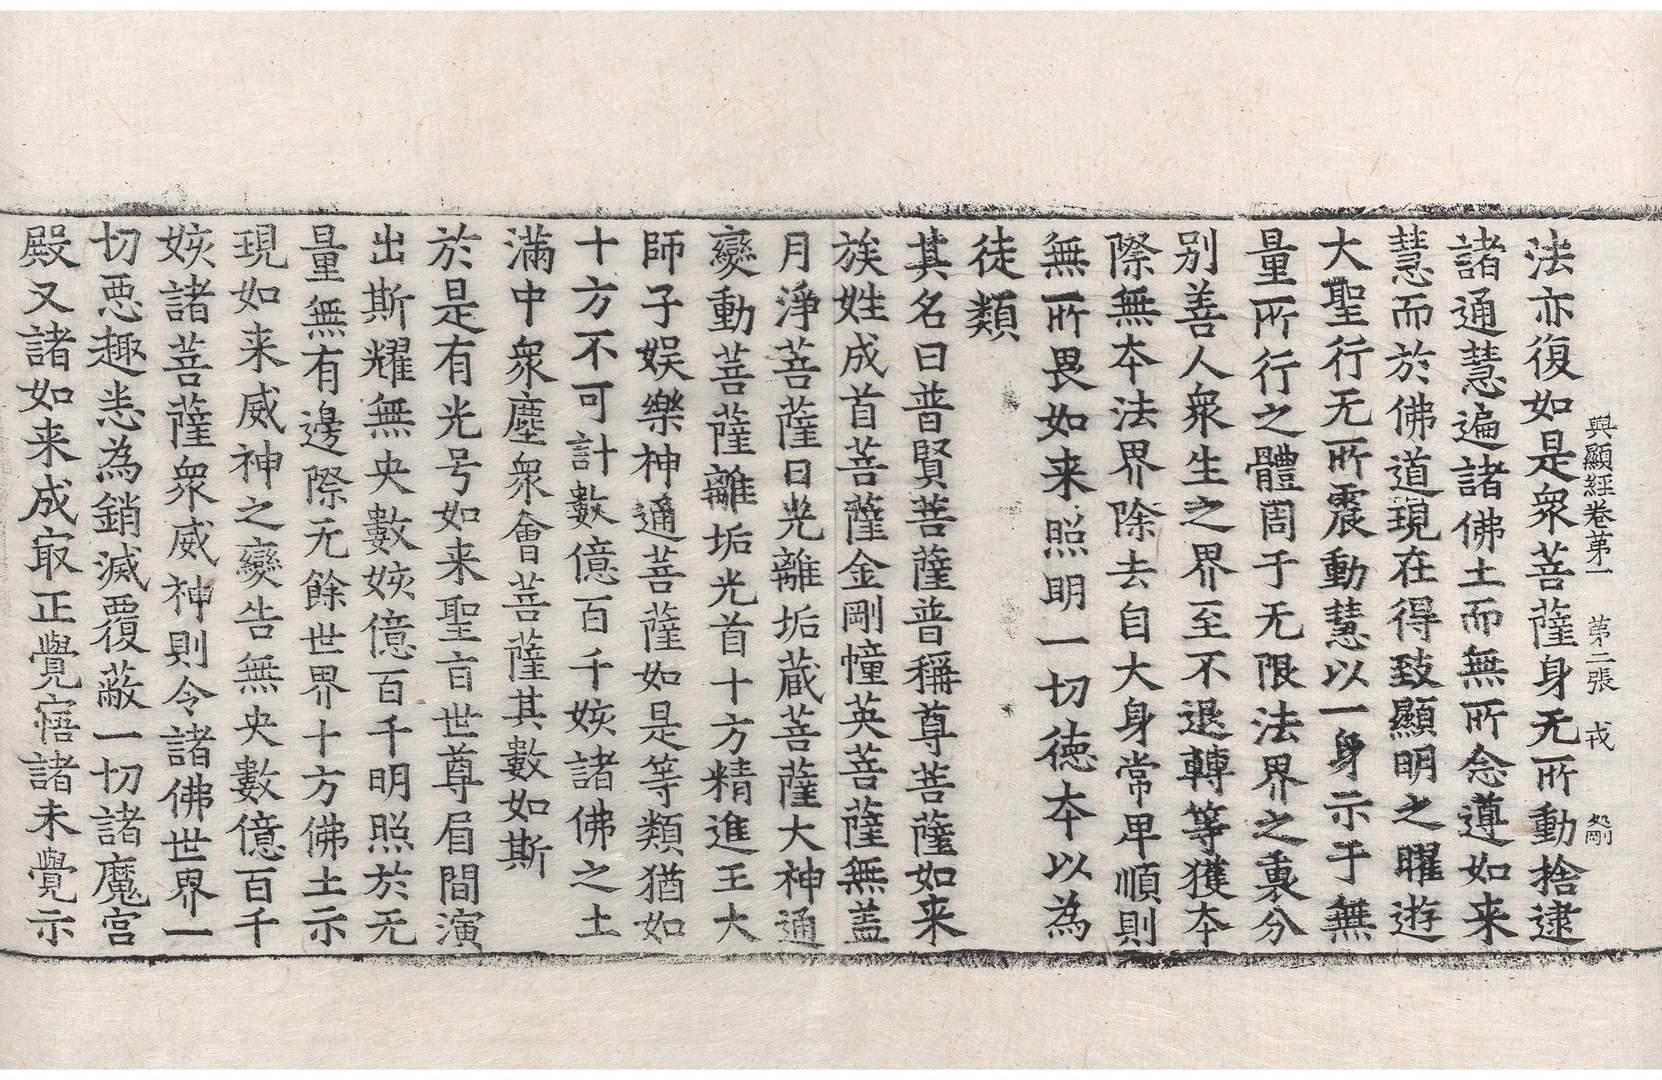 興顯經卷第一　第二張　戎　剛
法亦復如是衆菩薩身无所動捨逮
諸通慧遍諸佛土而無所念遵如来
慧而於佛道現在得致顯明之曜遊
大聖行无所震動慧以一身示于無
量所行之體周于无限法界之裏分
别善人衆生之界至不退轉等獲本
際無本法界除去自大身常卑順則
無所畏如来照明一切徳本以為
徒類
其名曰普賢菩薩普稱尊菩薩如来
族姓成首菩薩金剛幢英菩薩無蓋
月淨菩薩日光離垢蔵菩薩大神通
變動菩薩離垢光首十方精進王大
師子娱樂神通菩薩如是等類猶如
十方不可計數億百千姟諸佛之土
滿中衆塵衆會菩薩其數如斯
於是有光号如来聖旨世尊眉間演
出斯燿無央數姟億百千明照於无
量無有邊際无餘世界十方佛土示
現如来威神之變告無央數億百千
姟諸菩薩衆威神則令諸佛世界一
切悪趣悉為銷滅覆蔽一切諸魔宮
殿又諸如来成㝡正覺寤諸未覺示